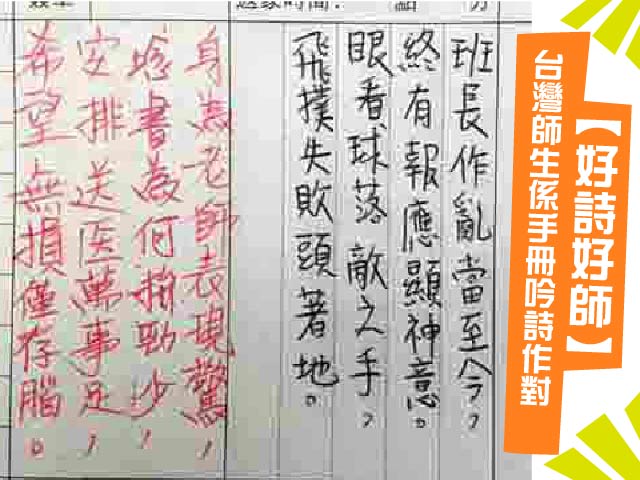 【好詩好師】
台灣師生係手冊吟詩作對
班長作亂當至今，
終有報應顯神意。
眼看球落敵之手，
飛撲失敗頭著地。
身為老師表現驚，
唸書為何
安排送医萬事足，
希望無損僅存腦。